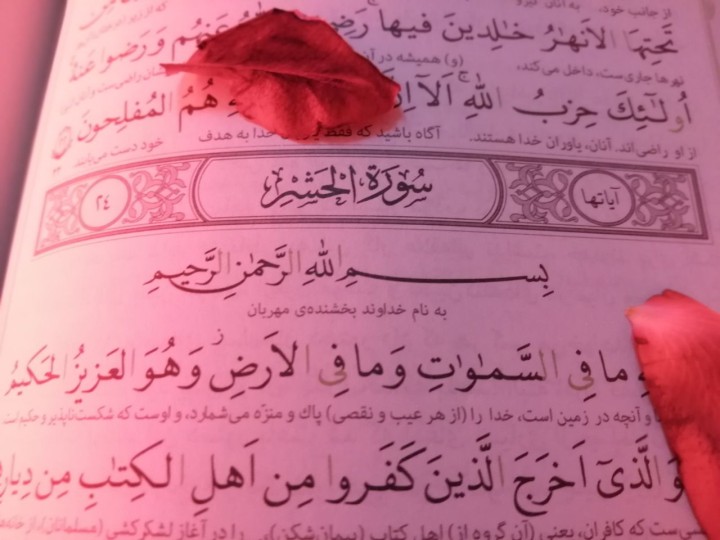 از جانب خود، به آنان
تَحتِهَا الاَنهٰرُ خٰلِدينَ فيها عَنهُم وَ رَضوا عَنهُ
نهرها جاری‌ست، داخل می‌کند، (و) همیشه در آن
اُولٰٓئِكَ حِزبُ اللّٰهِ اَلَآ اِنَّ هُمُ المُفلِحونَ
از او راضی‌اند. آنان، یاوران خدا هستند. آگاه باشید که فقط خدا به هدف خود دست می‌یابند
آیاتها سُورَةُ الْحَشْرِ ٢٤
بِسمِ اللّٰهِ الرَّحمٰنِ الرَّحیمِ
به نام خداوند بخشنده‌ی مهربان
ما فِی السَّمٰوٰتِ وَ ما فِی الاَرضِ وَ هُوَ العَزیزُ الحَکیمُ
و آنچه در زمین است، خدا را (از هر عیب و نقصی) پاک و منزّه می‌شمارد، و اوست که شکست‌ناپذیر و حکیم است
وَ الَّذیٓ اَخرَجَ الَّذینَ کَفَروا مِن اَهلِ الکِتٰبِ مِن دِیارِ
که کافران، یعنی (آن گروه از) اهل کتاب (پیمان‌شکن) را در آغاز لشکرکشی (مسلمانان)، از